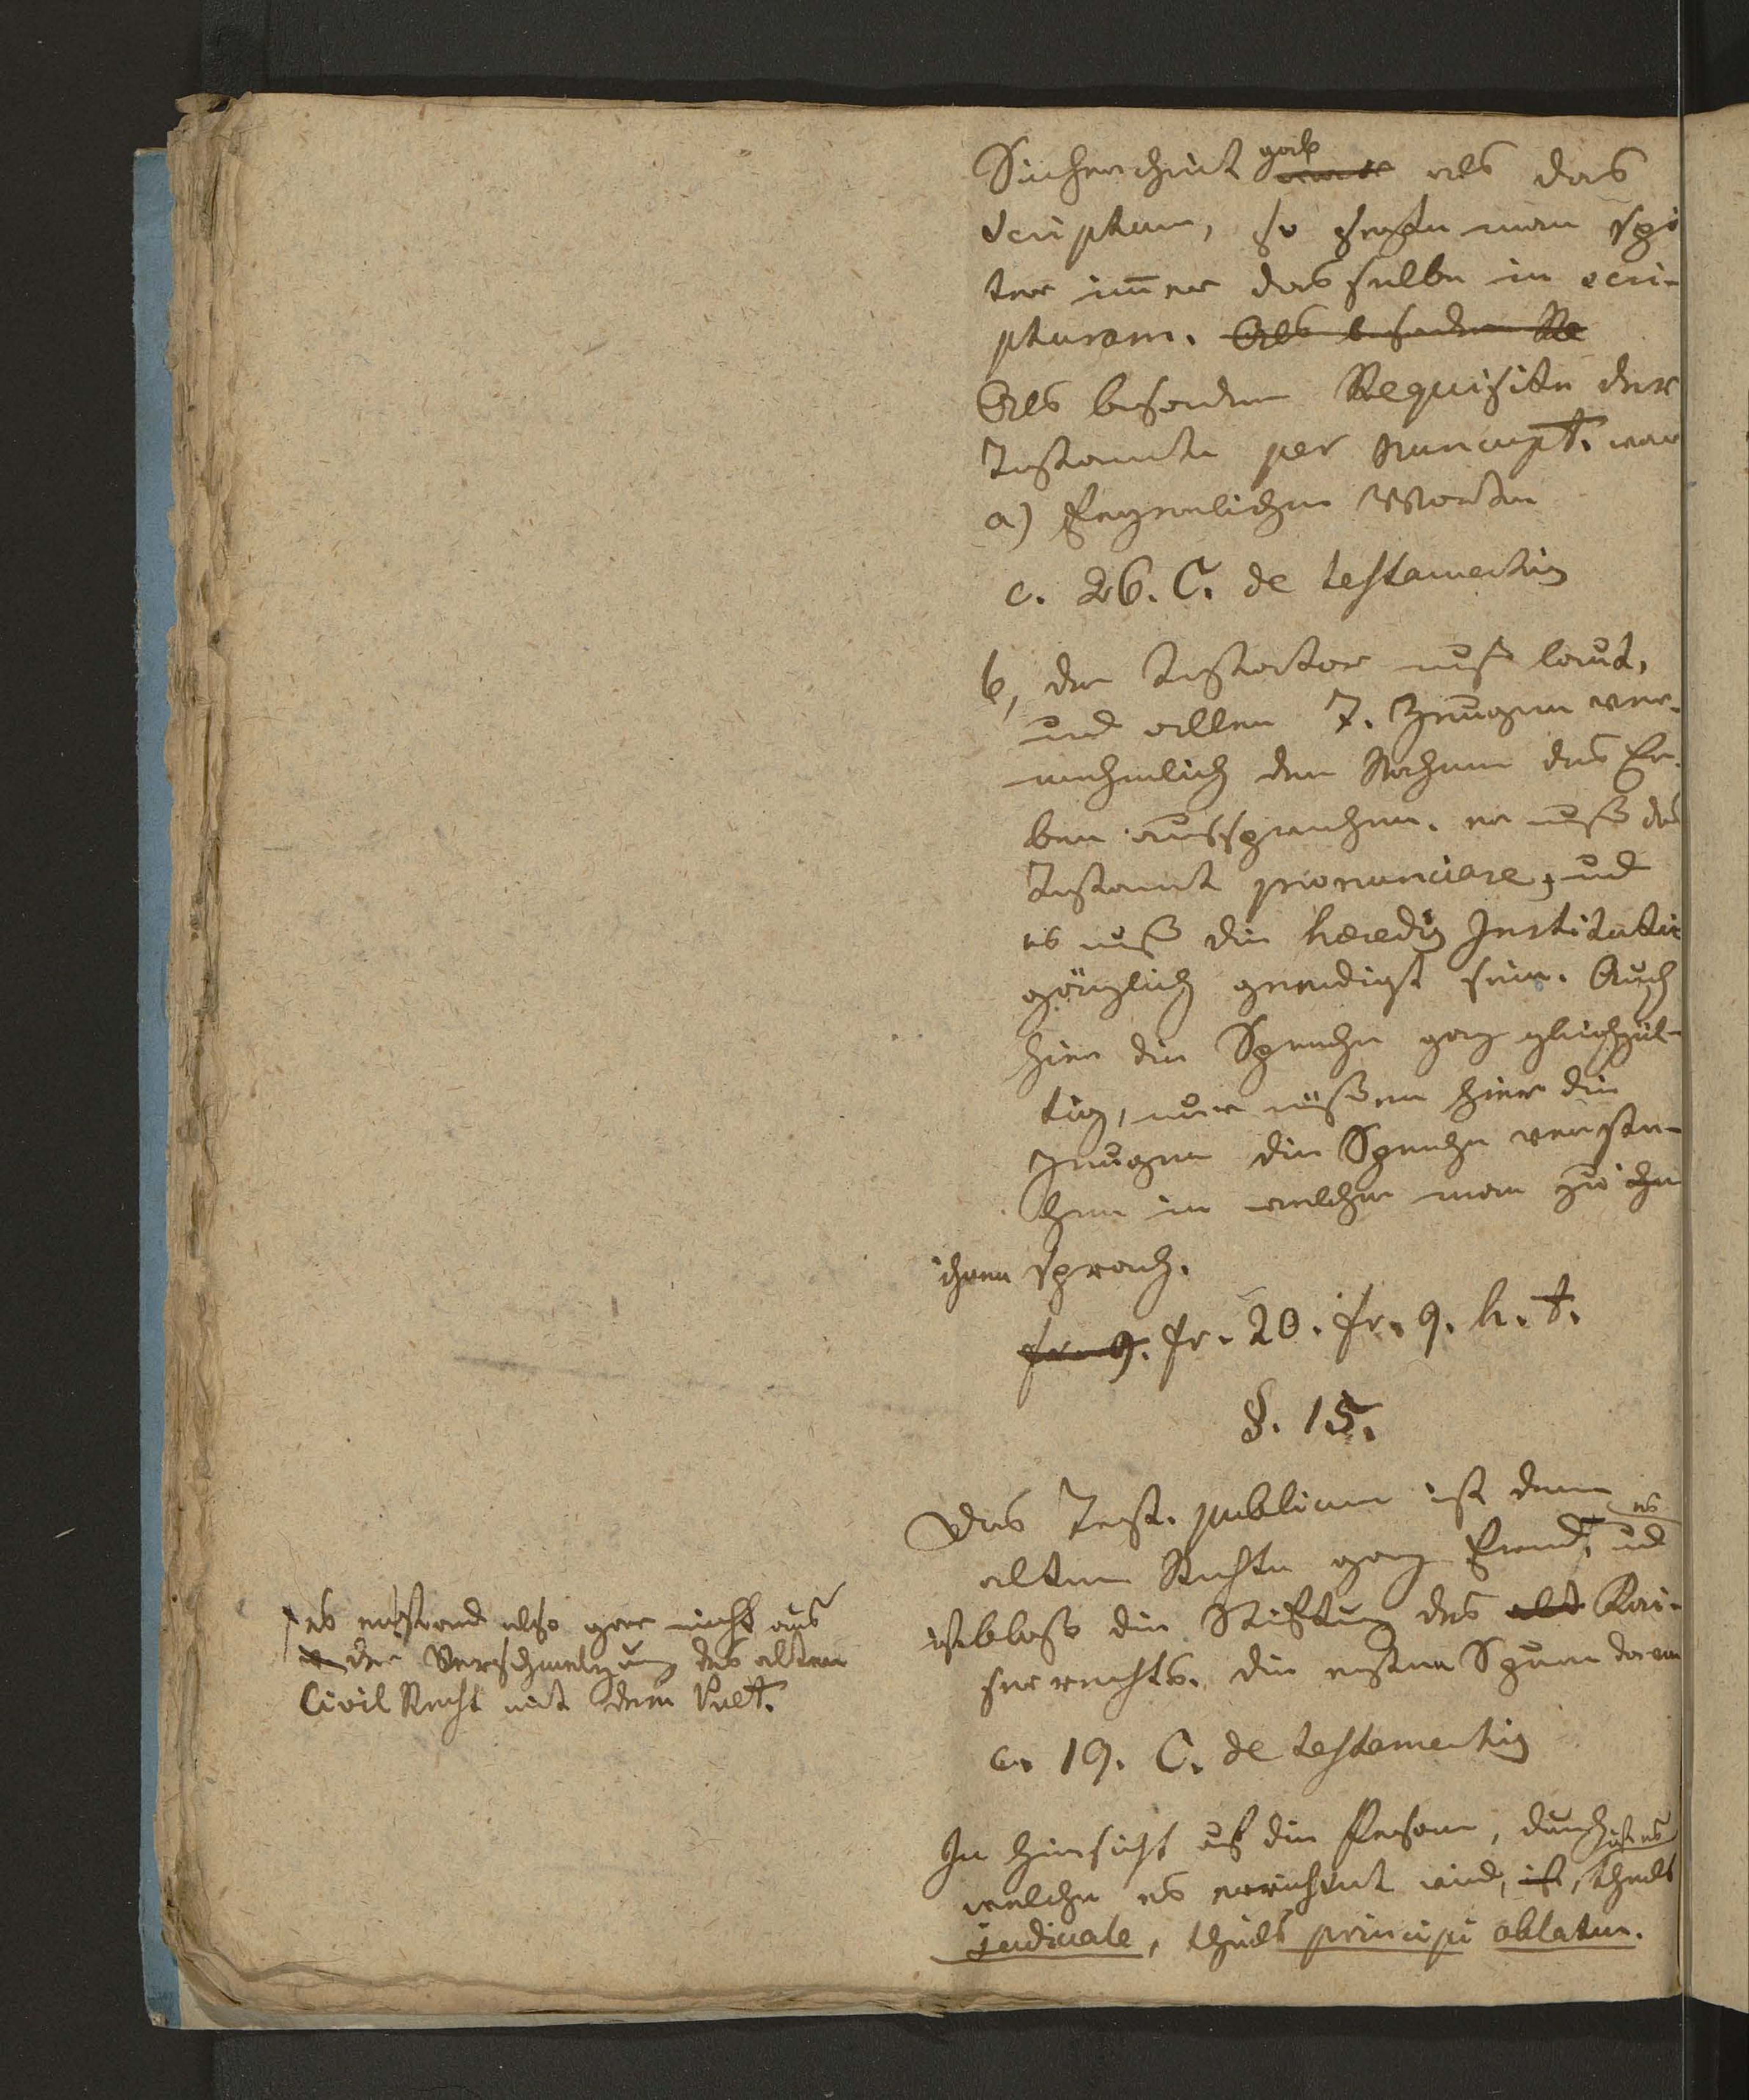 Sicherheit gab als das
scriptum, so sezte man spä
ter im̄er dasselbe in scri-
pturam. Als besondere Re
Als besondere Requisite der
Testamente per nuncupt. war
a) feyerlichen Worten
c. 26. C. de testamentis
b, der Testator muß laut,
und allen 7. Zeugen ver-
nehmlich den Nahmen des Er-
ben aussprechen. er muß das
Testamt pronunciare, und
es muß die heredis Institutio
gänzlich geendigt sein. Auch
hier die Sprache ganz gleichgül-
tig, nur müßen hier die
Zeugen die Sprache verste-
hen in welcher man zu ihn
ihnen sprach.
fr. 9. fr. 20. fr. 9. h. t.
§. 15.
Das Test. publicum ist dem
alten Rechte ganz fremd, es und
ist bloß die Stiftung des alt Kai-
serrechts. die ersten Spuren davon
c. 19. C. de testamentis
In Hinsicht auf die Person, durch
welche es errichtet wird, ist, ist es theils
judiciale, theils principi oblatum.
es entstand also gar nicht aus
der Verschmelzung des alten
Civil Recht mit dem